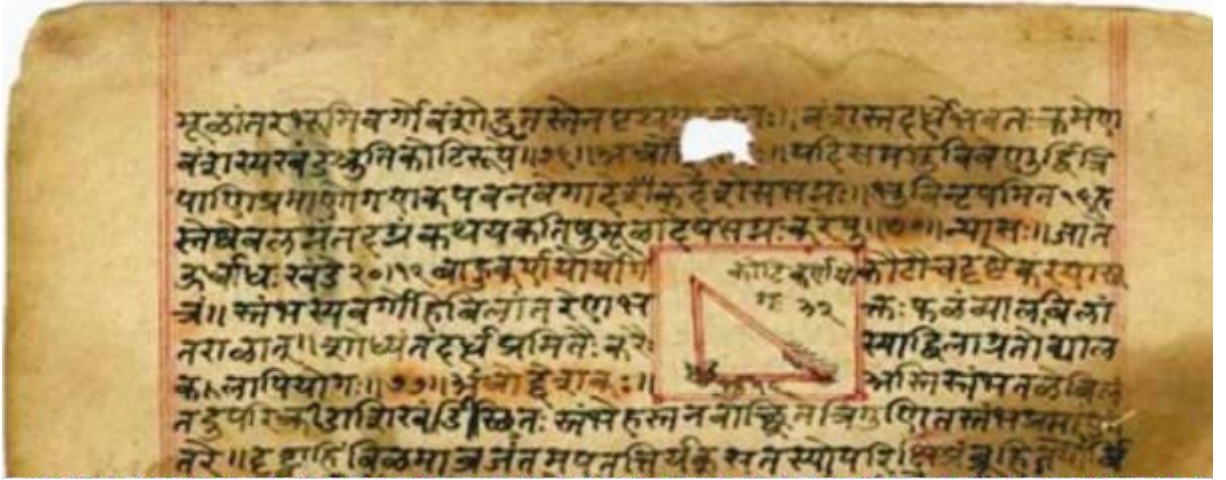 मूळांतरभूमिवर्गो वंशोद्धृतस्तेन पृथग्यु नः॥ वंशस्तदर्धे भवतः क्रमेण
वंशस्य खंडे श्रुतिकोटिरूपे॥७६॥ यदि समभुवि वेणुर्द्वित्रि
पाणिप्रमाणो गणक पवनवेगादेकदेशे स भग्नः॥ भुवि नृपमित १६ ह
स्तेष्वंगलग्नं तदग्रं कथय कतिषु मूळादेष भग्नः करेषु॥७०॥ न्यासः॥ जाते
ऊर्ध्वाधः खंडे २०॥१२ बाहुकर्णयोर्योगे कोटिकर्णयो कोटौ च दृष्टे करणसू
यु ३२
त्रं॥ स्तंभस्य वर्गोहिबिलांतरेण भ क्तः फळं व्यालबिलां
तराळात्॥ शोध्यं तदर्धप्रमितैः करैः स्याद्बिलाग्रतो व्याल
कलापियोगः॥७७॥ अत्रोद्देशकः॥ अस्ति स्तंभतळे बिलं
तदुपरि क्रीडाशिखंडी स्थितः स्तंभे हस्तनवोच्छ्रिते त्रिगुणितस्तंभप्रमाणां
तरे॥ दृष्ट्वाहिं बिळमाव्रजंतमपतत्तिर्यक् स तस्योपरि क्षिप्रं ब्रूहि तयोर्बि